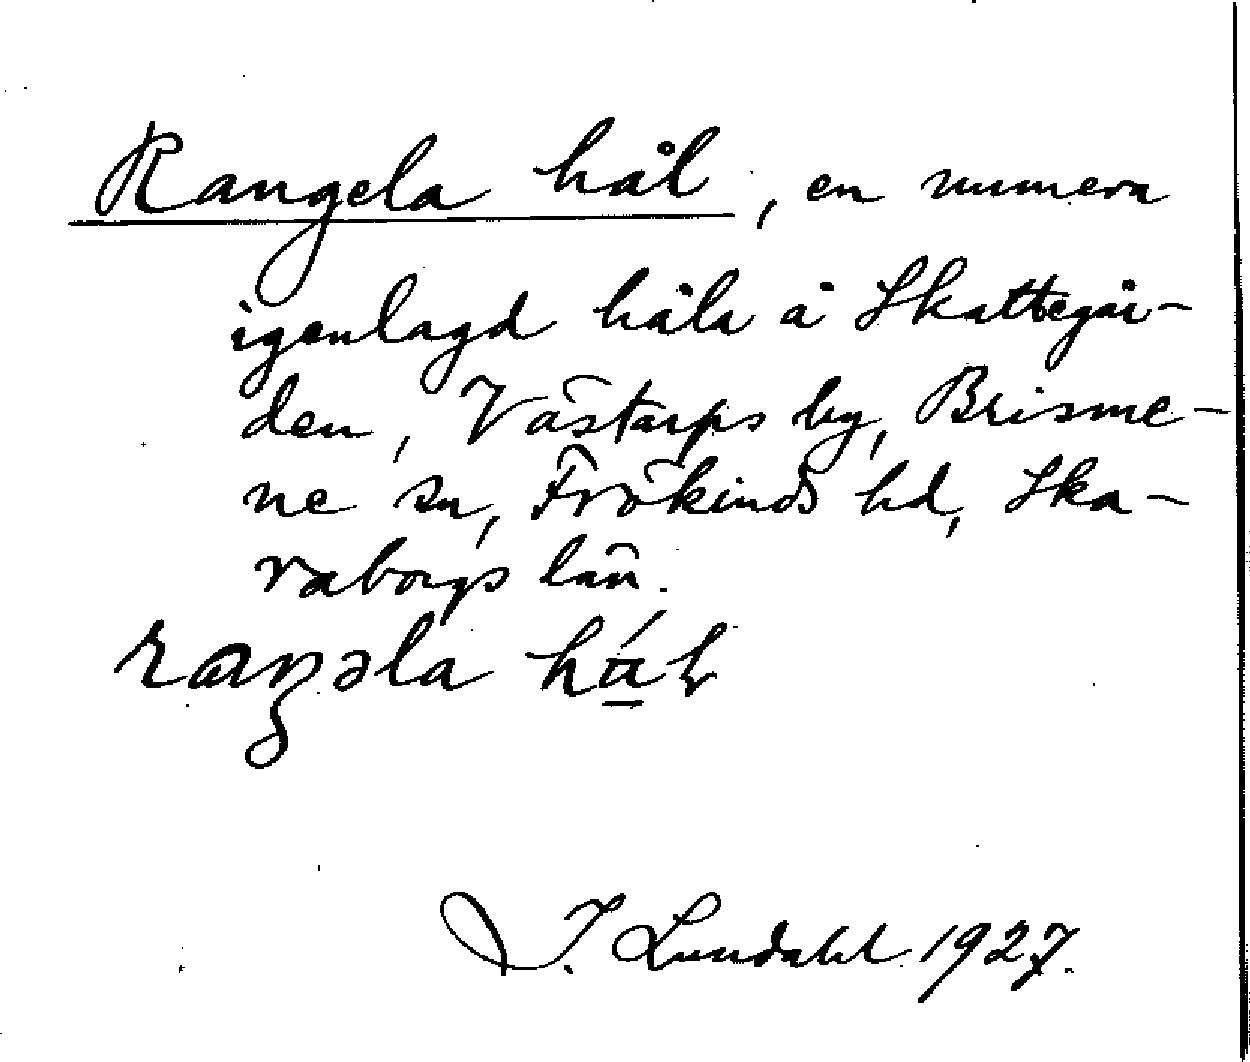 Rangela hål, en numera
igenlagd håla å Skattegår-
den, Västarps by, Brisme-
ne sn, Frökinds hd, Ska-
raborgs län.
raŋəla
I. Lundahl 1927.